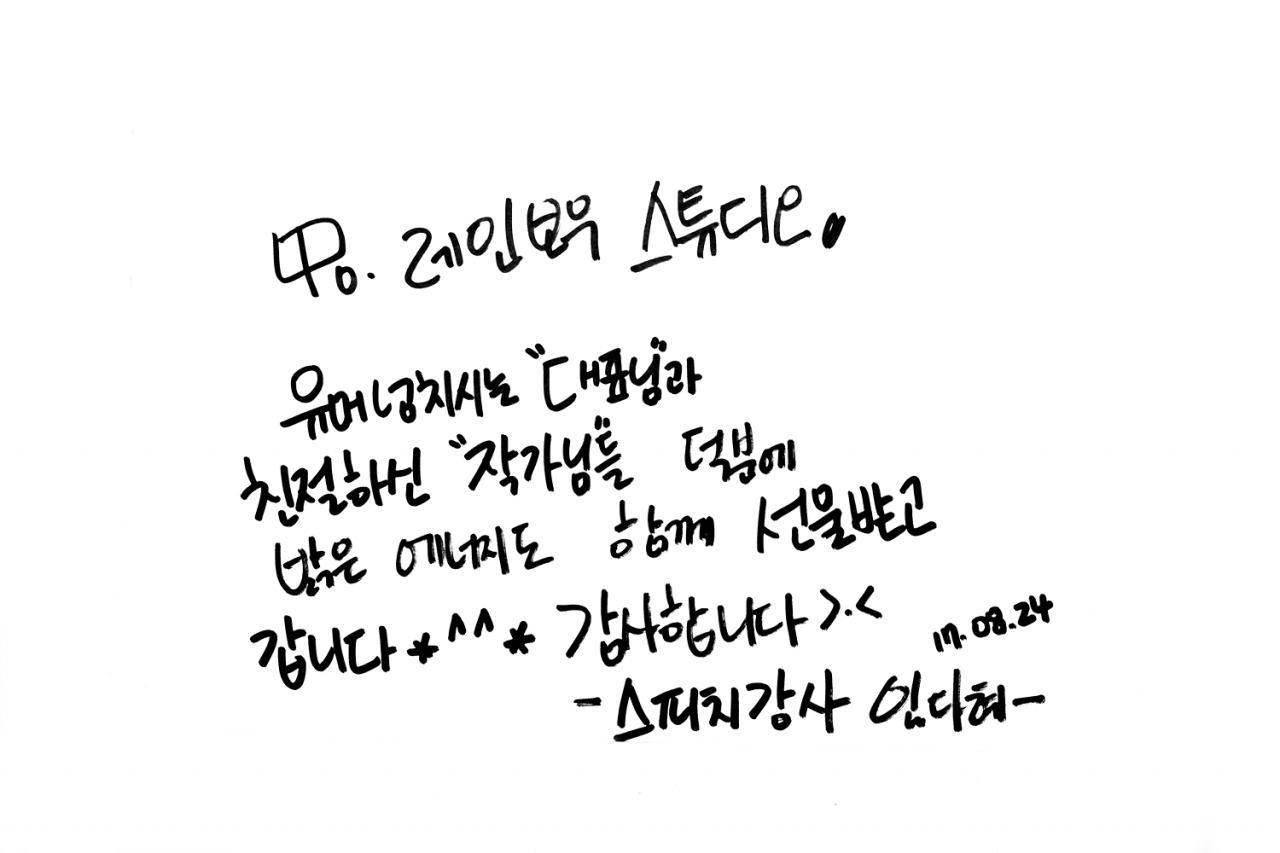 To. 레인보우 스튜디오.
유머 넘치시는 "대표님"과
친절하신 "작가님"들 덕분에
밝은 에너지도 함께 선물받고
갑니다 *^^* 감사합니다 >.<
17.08.24
-스피치강사 임다혜-